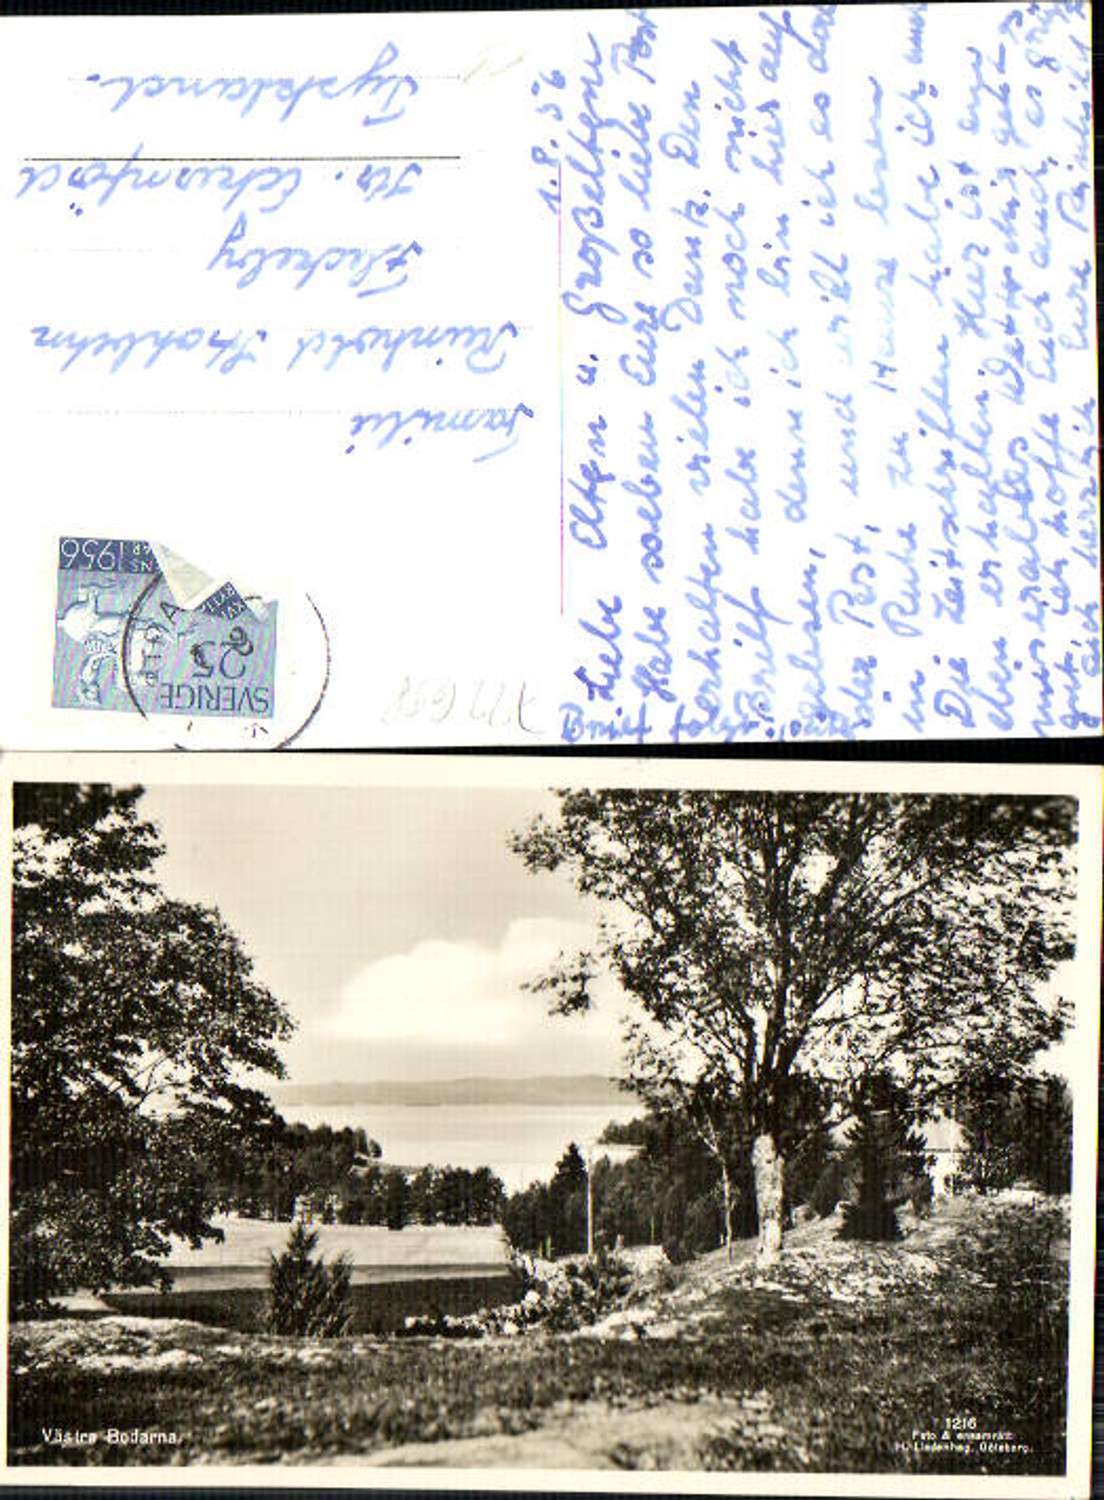 1.8.56
Liebe Eltern u. Großeltern
Habe soeben Eure so liebe Post
erhalten vielen Dank. Den
Brief habe ich noch nicht
gelesen, denn ich bin hier auf
der Post, und will ich es dann
in Ruhe zu Hause lesen
Die Zeitschriften habe ich auch
eben erhalten. Hier ist ein
miserables Wetter mir geht es
gut ich hoffe Euch auch, es grüßt
Euch herzlich Eure
Familie
Reinhold
Flackeby
Tyskland.
SVERIGE
25
1956
722658
Västra Bodarna.
1216
Foto & ensamrätt:
H. Lindenhag, Göteborg.